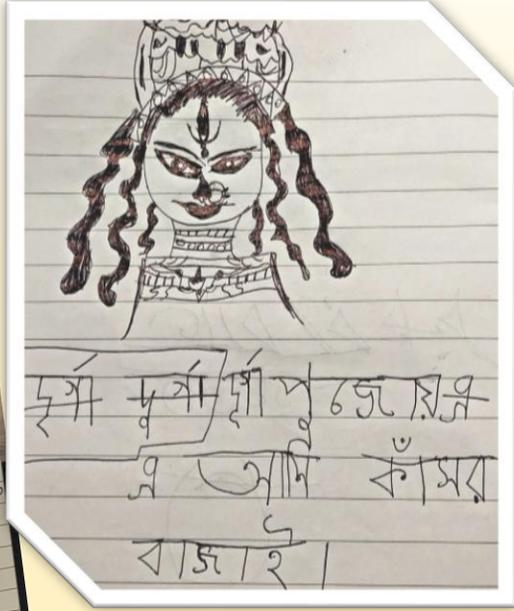 দূর্গা দূর্গা দূর্গা পুজোয়
এ আমি কাঁসর
বাজাই।